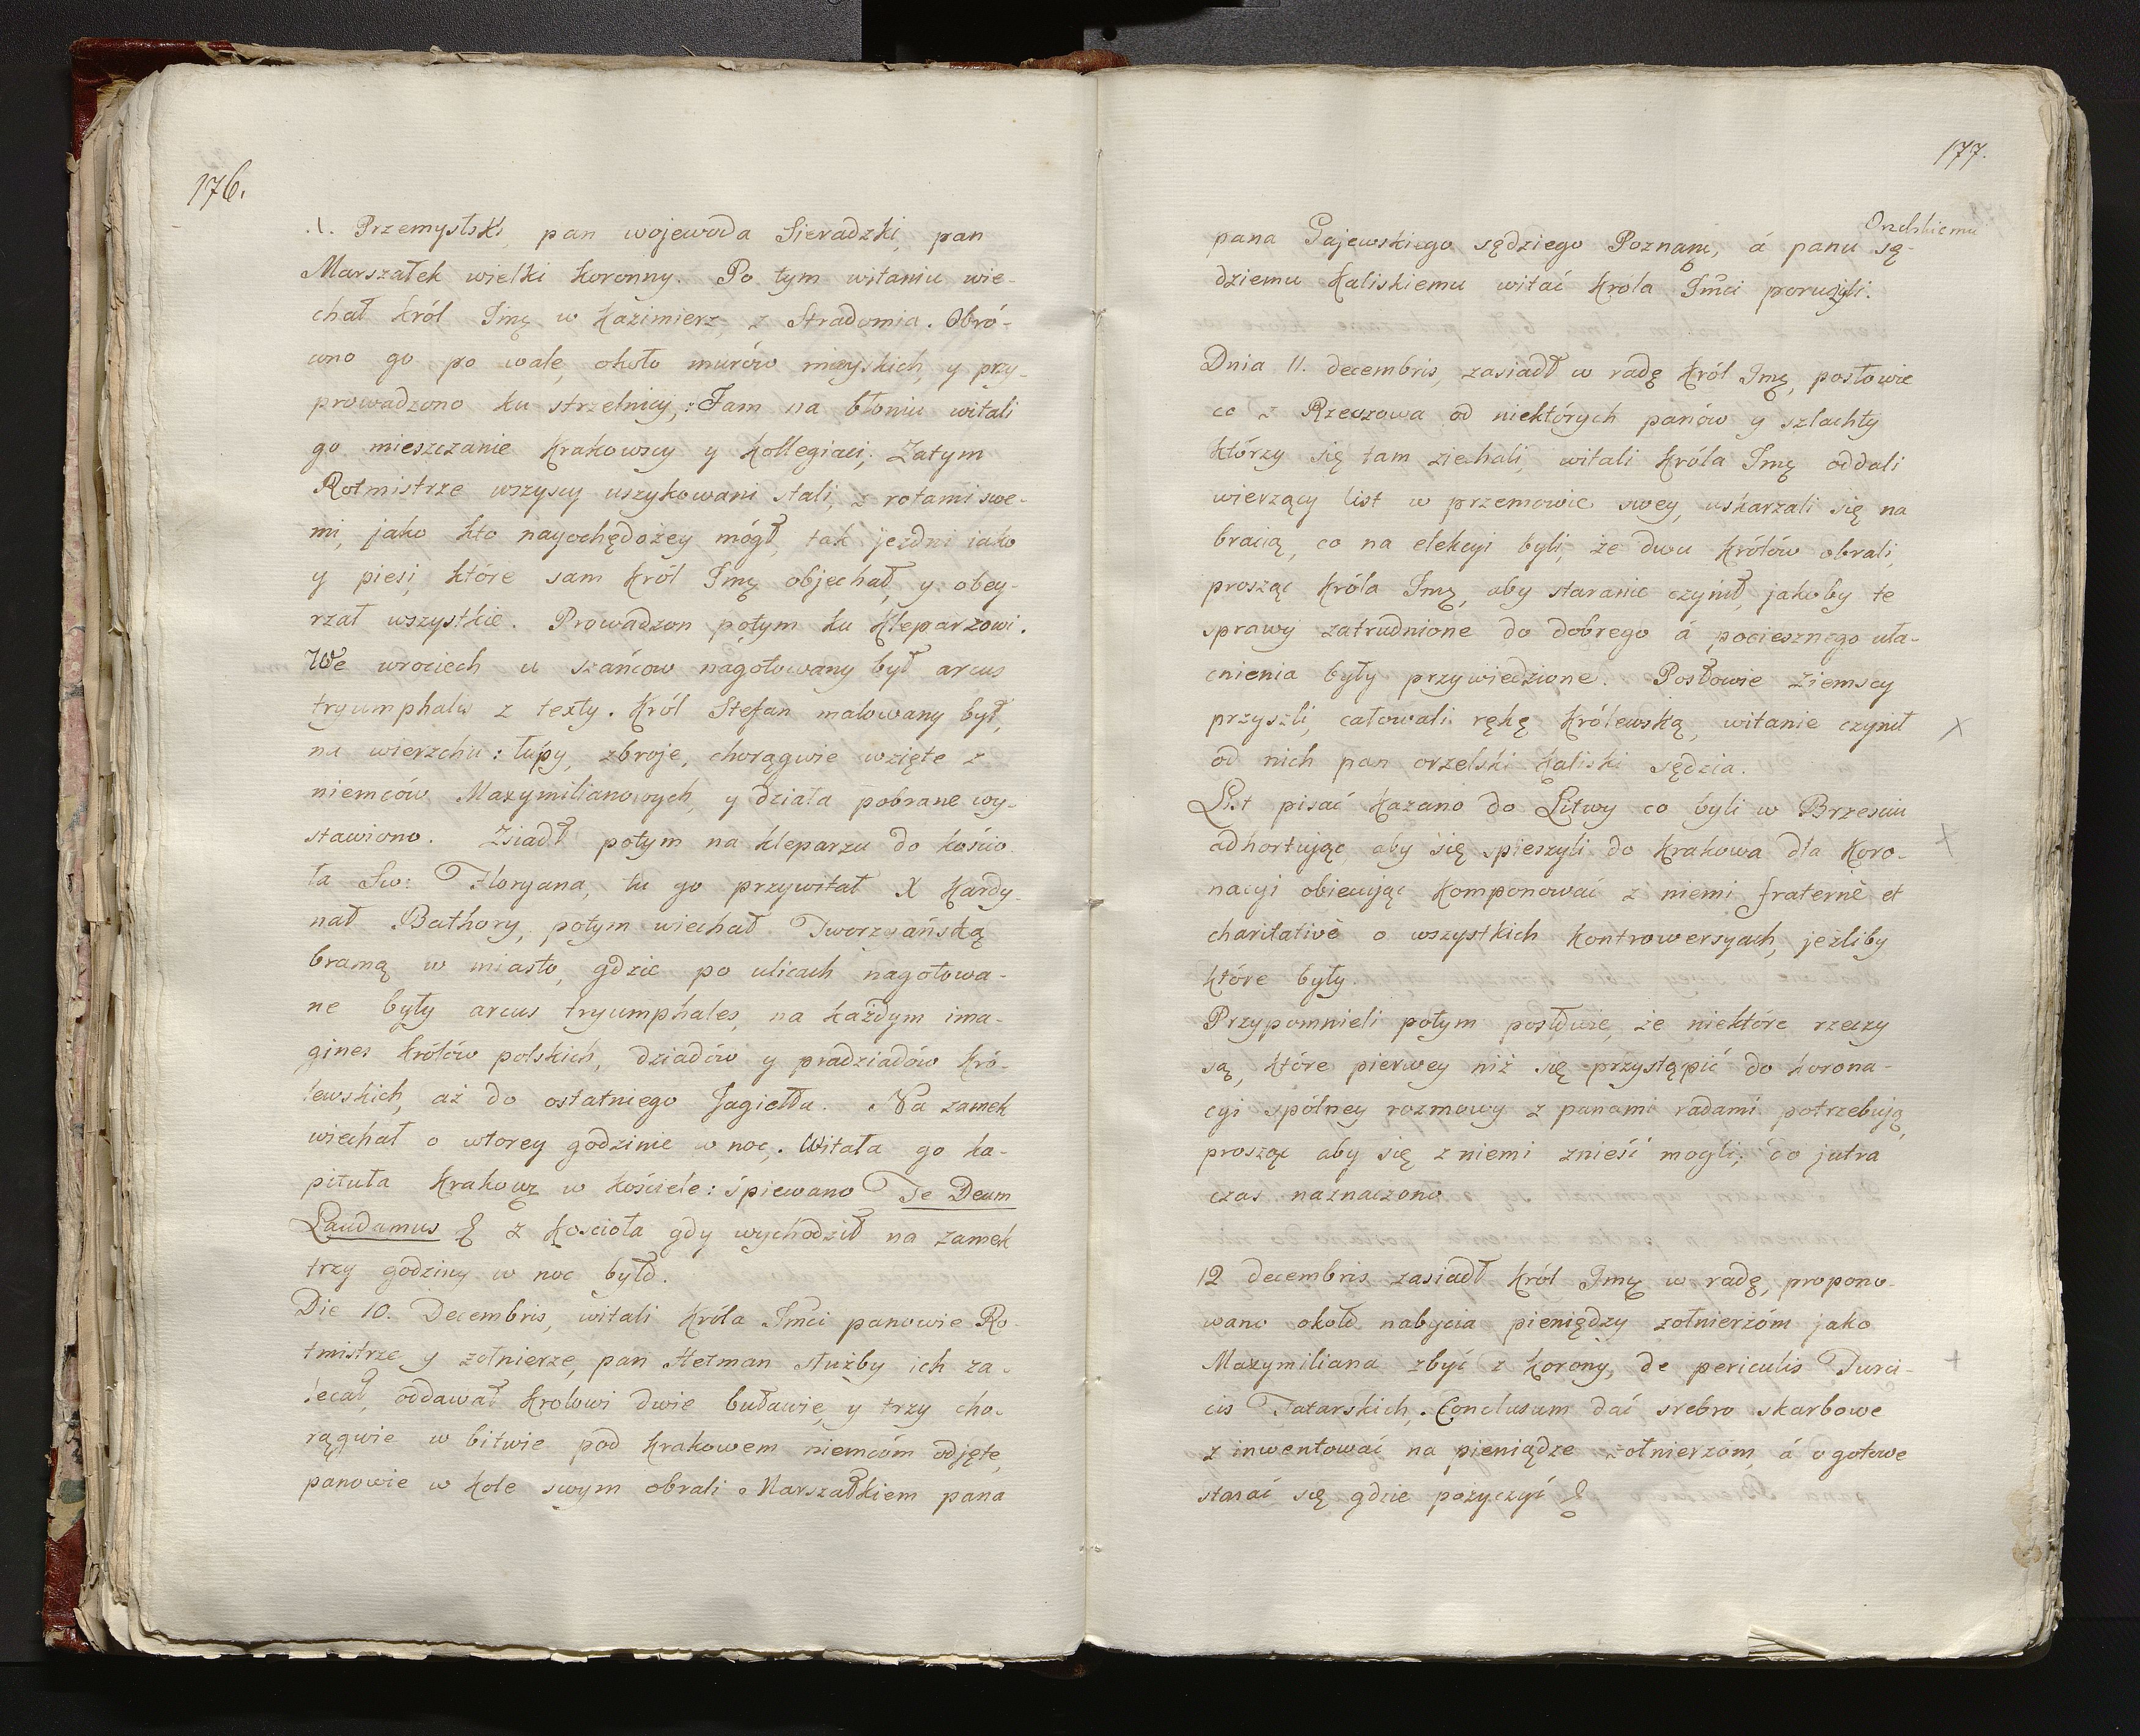 176.
.\. Przemyslski, pan wojewoda Sieradzki, pan
Marszałek wielki koronny. Po tym witaniu wie-
chał król Jmę w Kazimierz, z Stradomia. Obró-
cono go po wale, około murów mieyskich, y przy-
prowadzono ku strzelnicy,: Tam na błoniu witali
go mieszczanie Krakowscy y kollegiaci; Zatym
Rotmistrze wszyscy uszykowani stali, z rotami swe-
mi, jako kto nayochędożey mógł, tak jezdni iako
y piesi, które sam król Jmę objechał, y obey-
rzał wszystkie. Prowadzon potym ku Kleparzowi.
We wrociech u szańcow nagotowany był arcus
tryumphalis z texty. Król Stefan malowany był,
na wierzchu: łupy, zbroje, chorągwie wzięte z
niemców Maxymilianowych, y działa pobrane wy-
stawiono. Zsiadł potym na kleparzu do kościo-
ła Sw: Floryana, tu go przywitał X Kardy-
nał Bathory, potym wiechał Tworzyańską
bramą w miasto, gdzie po ulicach nagotowa-
ne były arcus tryumphales, na każdym ima-
gines królów polskich, dziadów y pradziadów kró-
lewskich, aż do ostatniego Jagiełła. Na zamek
wiechał o wtorey godzinie w noc,. Witała go ka-
pituła Krakowę w kościele: śpiewano Te Deum
Laudamus & z kościoła gdy wychodził na zamek
trzy godziny w noc było.
Die 10. Decembris, witali króla Jmci panowie Ro-
tmistrze y żołnierze, pan Hetman służby ich za-
lecał, oddawał królowi dwie buławie, y trzy cho-
rągwie w bitwie pod Krakowem niemcóm odjęte,
panowie w kole swym obrali Marszałkiem pana
177.
Orzelskiemu
pana Gajewskiego sędziego Poznanę, á panu sę-
dziemu Kaliskiemu witać króla Jmci poruczyli.
Dnia 11. decembris, zasiadł w radę Król Jmę, posłowie
co z Rzeszowa od niektórych panów y szlachty
którzy się tam ziechali, witali króla Jmę oddali
wierzący list w przemowie swey, uskarzali się na
bracią, co na elekcyi byli, że dwu królów obrali,
prosząc króla Jmę, aby staranie czynił, jakoby te
sprawy zatrudnione do dobrego á pociesznego uła-
cnienia były przywiedzione. Posłowie Ziemscy
przyszli, całowali rękę królewską, witanie czynił
od nich pan orzelski kaliski sędzia.
List pisać kazano do Litwy co byli w Brzesciu
adhortując, aby się spieszyli do Krakowa dla koro-
nacyi obiecując komponować z niemi fraternè et
charitativè o wszystkich kontrowersyach, jeżliby
które były.
Przypomnieli potym posłowie, że niektóre rzeczy
są, które pierwey niż się przystąpić do korona-
cyi spólney rozmowy z panami radami potrzebują,
prosząc aby się z niemi znieść mogli; do jutra
czas naznaczono
12 decembris zasiadł król Jmę w radę, propono-
wano około nabycia pieniędzy żołnierzóm jako
Maxymiliana zbyć z korony, de periculis Turci-
cis Tatarskich,. Conclusum dać srebro skarbowe
z inwentować na pieniądze żołnierzom, á o gotowe
starać się gdzie pożyczyć &